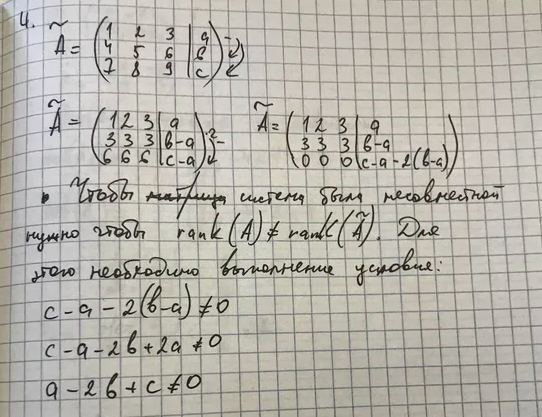 4. Ã = (1 2 3 | a
4 5 6 | b
7 8 9 | c)
Ã = (1 2 3 | a
3 3 3 | b-a
6 6 6 | c-a) Ã = (1 2 3 | a
3 3 3 | b-a
0 0 0 | c-a-2(b-a))
Чтобы система была несовместной
нужно чтобы rank(A) ≠ rank(Ã). Для
этого необходимо выполнение условия:
c-a-2(b-a)≠0
c-a-2b+2a≠0
a-2b+c≠0